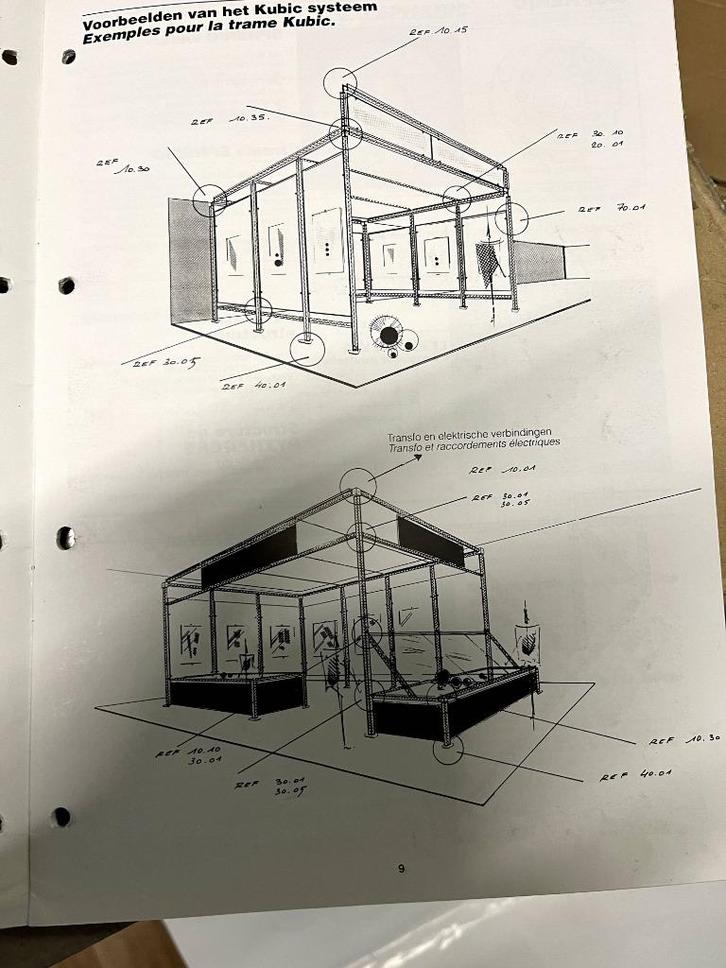 Voorbeelden van het Kubic systeem
Exemples pour la trame Kubic.
REF 10.15
REF 10.35.
REF 30.10
20.01
REF
10.30
REF 70.01
REF 30.05
REF 40.01
Transfo en elektrische verbindingen
Transfo et raccordements électriques
REF 10.01
REF 30.01
30.05
REF 10.10
30.01
REF 30.01
30.05
REF 10.30
REF 40.01
9